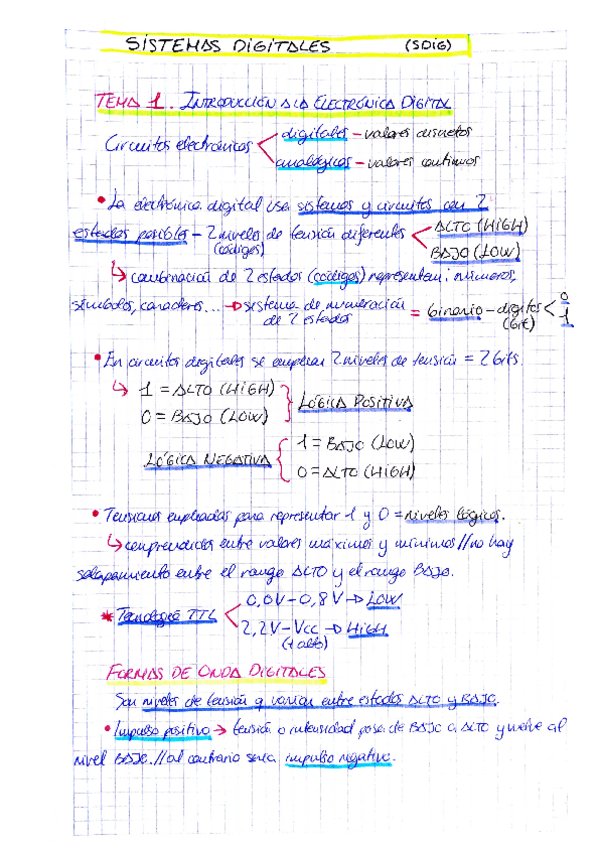 SISTEMAS DIGITALES (SDIG)
TEMA 1. INTRODUCCIÓN A LA ELECTRÓNICA DIGITAL
Circuitos electrónicos < digitales – valores discretos
analógicos – valores continuos
• La electrónica digital usa sistemas y circuitos con 2
estados posibles – 2 niveles de tensión diferentes < ALTO (HIGH)
(códigos) BAJO (LOW)
↳ combinación de 2 estados (códigos) representan: números,
símbolos, caracteres... → sistema de numeración = binario – dígitos < 0
de 2 estados (bit) 1
• En circuitos digitales se emplean 2 niveles de tensión = 2 bits.
↳ 1 = ALTO (HIGH)
0 = BAJO (LOW) } LÓGICA POSITIVA
LÓGICA NEGATIVA { 1 = BAJO (LOW)
0 = ALTO (HIGH)
• Tensiones empleadas para representar 1 y 0 = niveles lógicos.
↳ comprendidos entre valores máximos y mínimos // no hay
solapamiento entre el rango ALTO y el rango BAJO.
* Tecnología TTL < 0,0V – 0,8V → LOW
2,2V – Vcc → HIGH
(+ alto)
FORMAS DE ONDA DIGITALES
Son niveles de tensión q varían entre estados ALTO y BAJO.
• Impulso positivo → tensión o intensidad pasa de BAJO a ALTO y vuelve al
nivel BAJO. // al contrario sería impulso negativo.